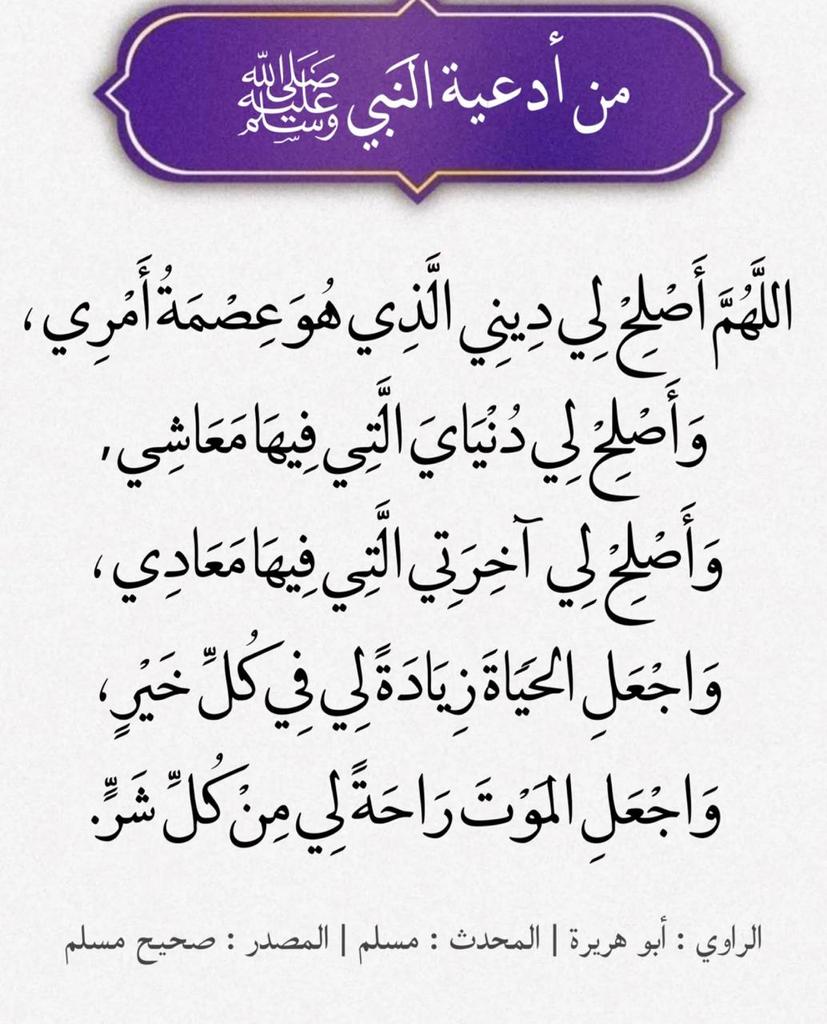 من أدعية النبي ﷺ
اللَّهُمَّ أَصْلِحْ لِي دِينِي الَّذِي هُوَ عِصْمَةُ أَمْرِي،
وَأَصْلِحْ لِي دُنْيَايَ الَّتِي فِيهَا مَعَاشِي,
وَأَصْلِحْ لِي آخِرَتِي الَّتِي فِيهَا مَعَادِي،
وَاجْعَلِ الحَيَاةَ زِيَادَةً لِي فِي كُلِّ خَيْرٍ،
وَاجْعَلِ المَوْتَ رَاحَةً لِي مِنْ كُلِّ شَرٍّ.
الراوي : أبو هريرة | المحدث : مسلم | المصدر : صحيح مسلم